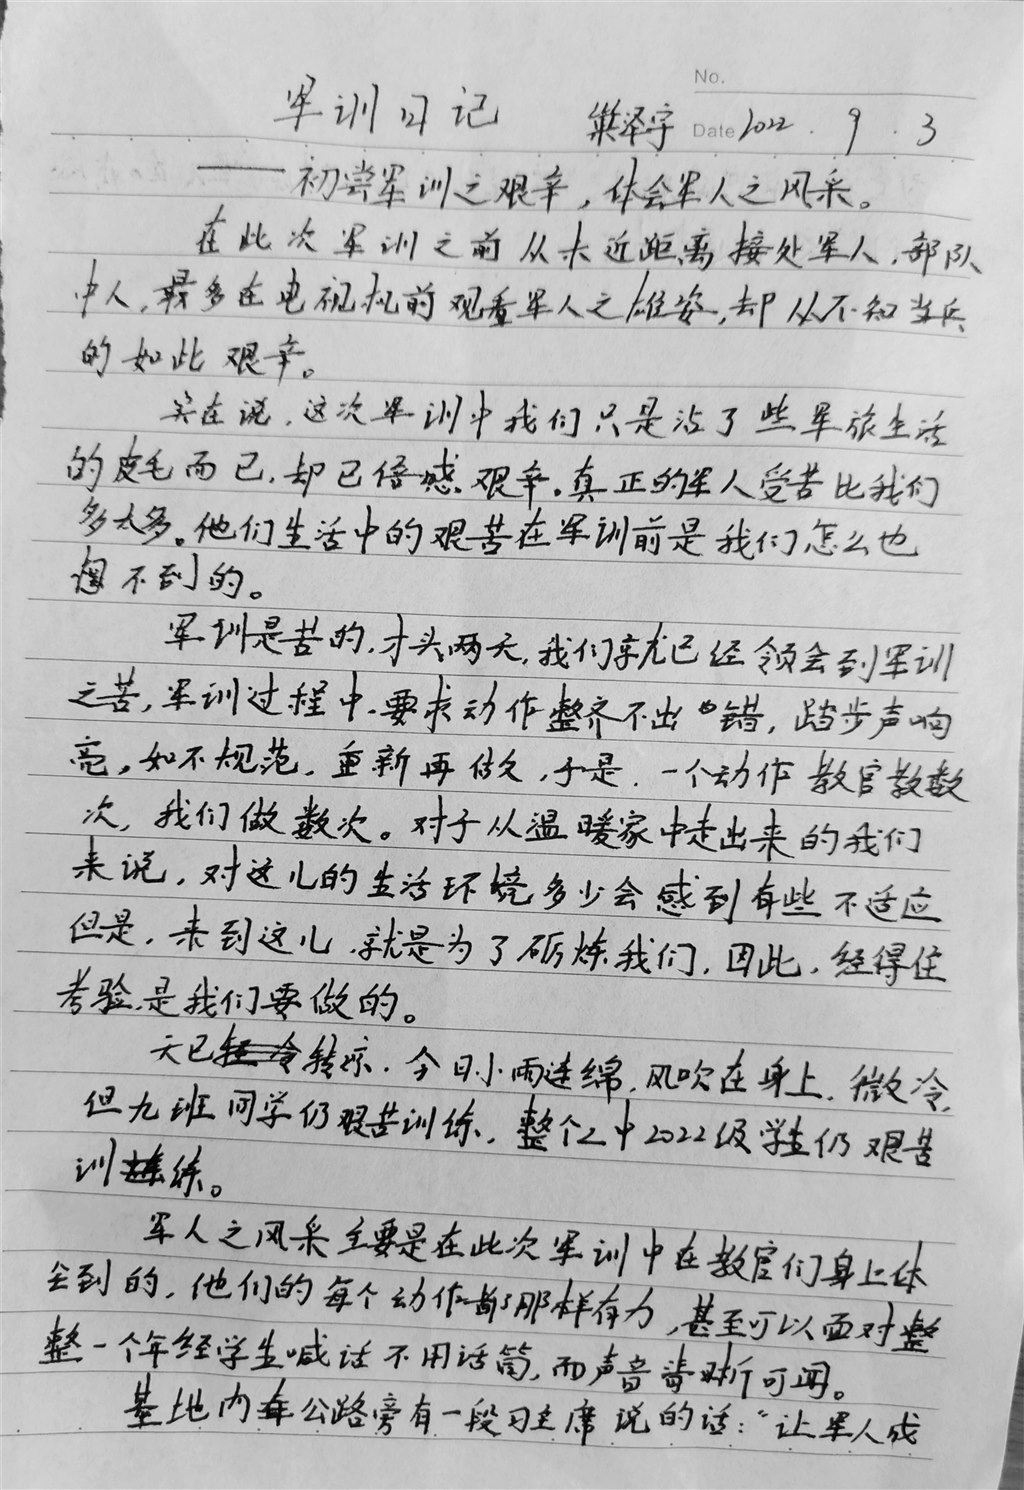 No.
军训日记
樊泽宇 Date 2022 . 9 . 3
——初尝军训之艰辛，体会军人之风采。
在此次军训之前从未近距离接处军人，部队
中人，最多在电视机前观看军人之雄姿，却从不知当兵
的如此艰辛。
实在说，这次军训中我们只是沾了些军旅生活
的皮毛而已，却已倍感艰辛。真正的军人受苦比我们
多太多。他们生活中的艰苦在军训前是我们怎么也
想不到的。
军训是苦的，才头两天，我们就已经领会到军训
之苦，军训过程中，要求动作整齐不出错，踏步声响
亮，如不规范，重新再做，于是，一个动作教官教数
次，我们做数次。对于从温暖家中走出来的我们
来说，对这儿的生活环境多少会感到有些不适应
但是，来到这儿，就是为了砺炼我们，因此，经得住
考验，是我们要做的。
天已转凉，今日小雨连绵，风吹在身上，微冷，
但九班同学仍艰苦训练，整个二中2022级学生仍艰苦
训练。
军人之风采主要是在此次军训中在教官们身上体
会到的，他们的每个动作都那样有力，甚至可以面对整
整一个年经学生喊话不用话筒，而声音清晰可闻。
基地内公路旁有一段习主席说的话：“让军人成